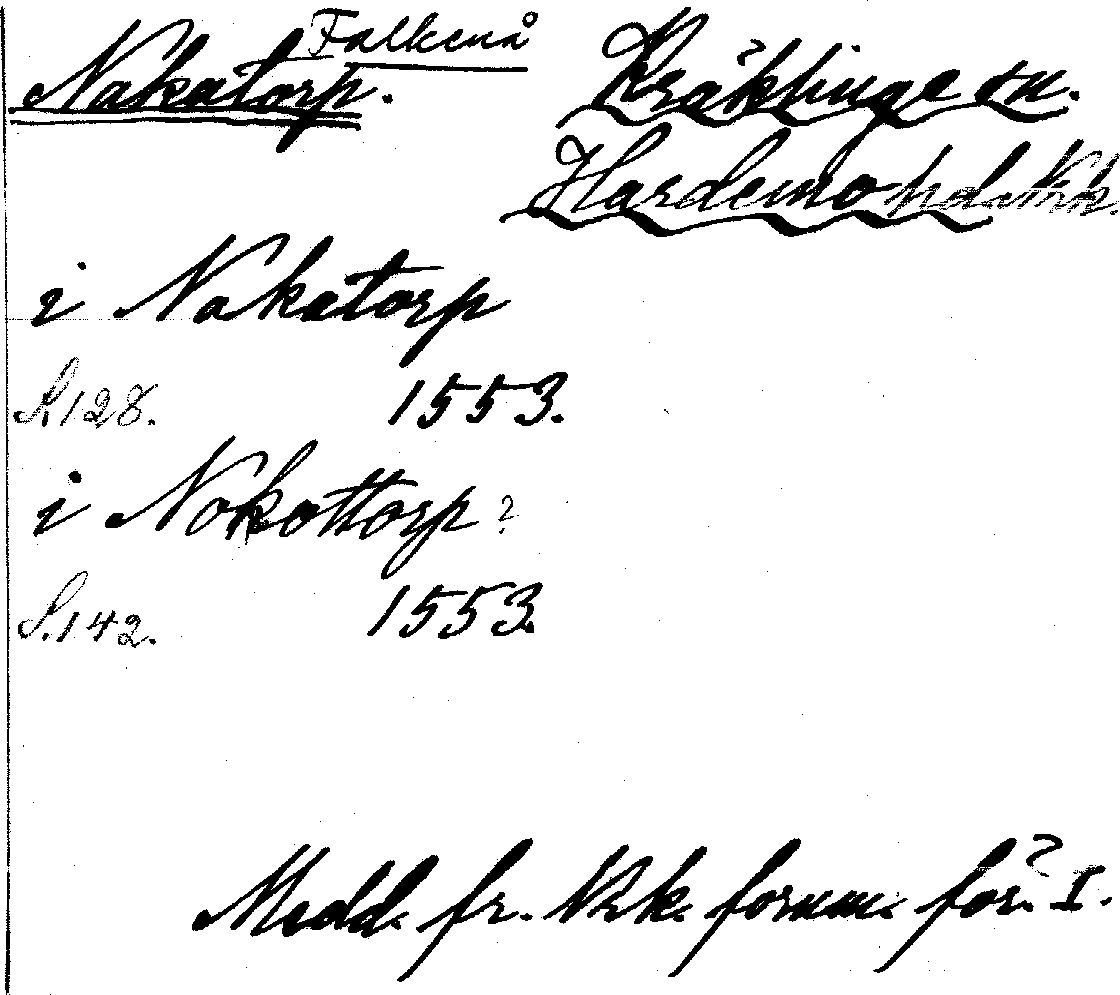 Falkenå
Nakatorp. Kräklinge sn.
Hardemo hd. Nrk.
i Nakatorp
S. 128. 1553.
i Nokottorp?
S. 142. 1553.
Medd. fr. Nrk. fornm. för. I.